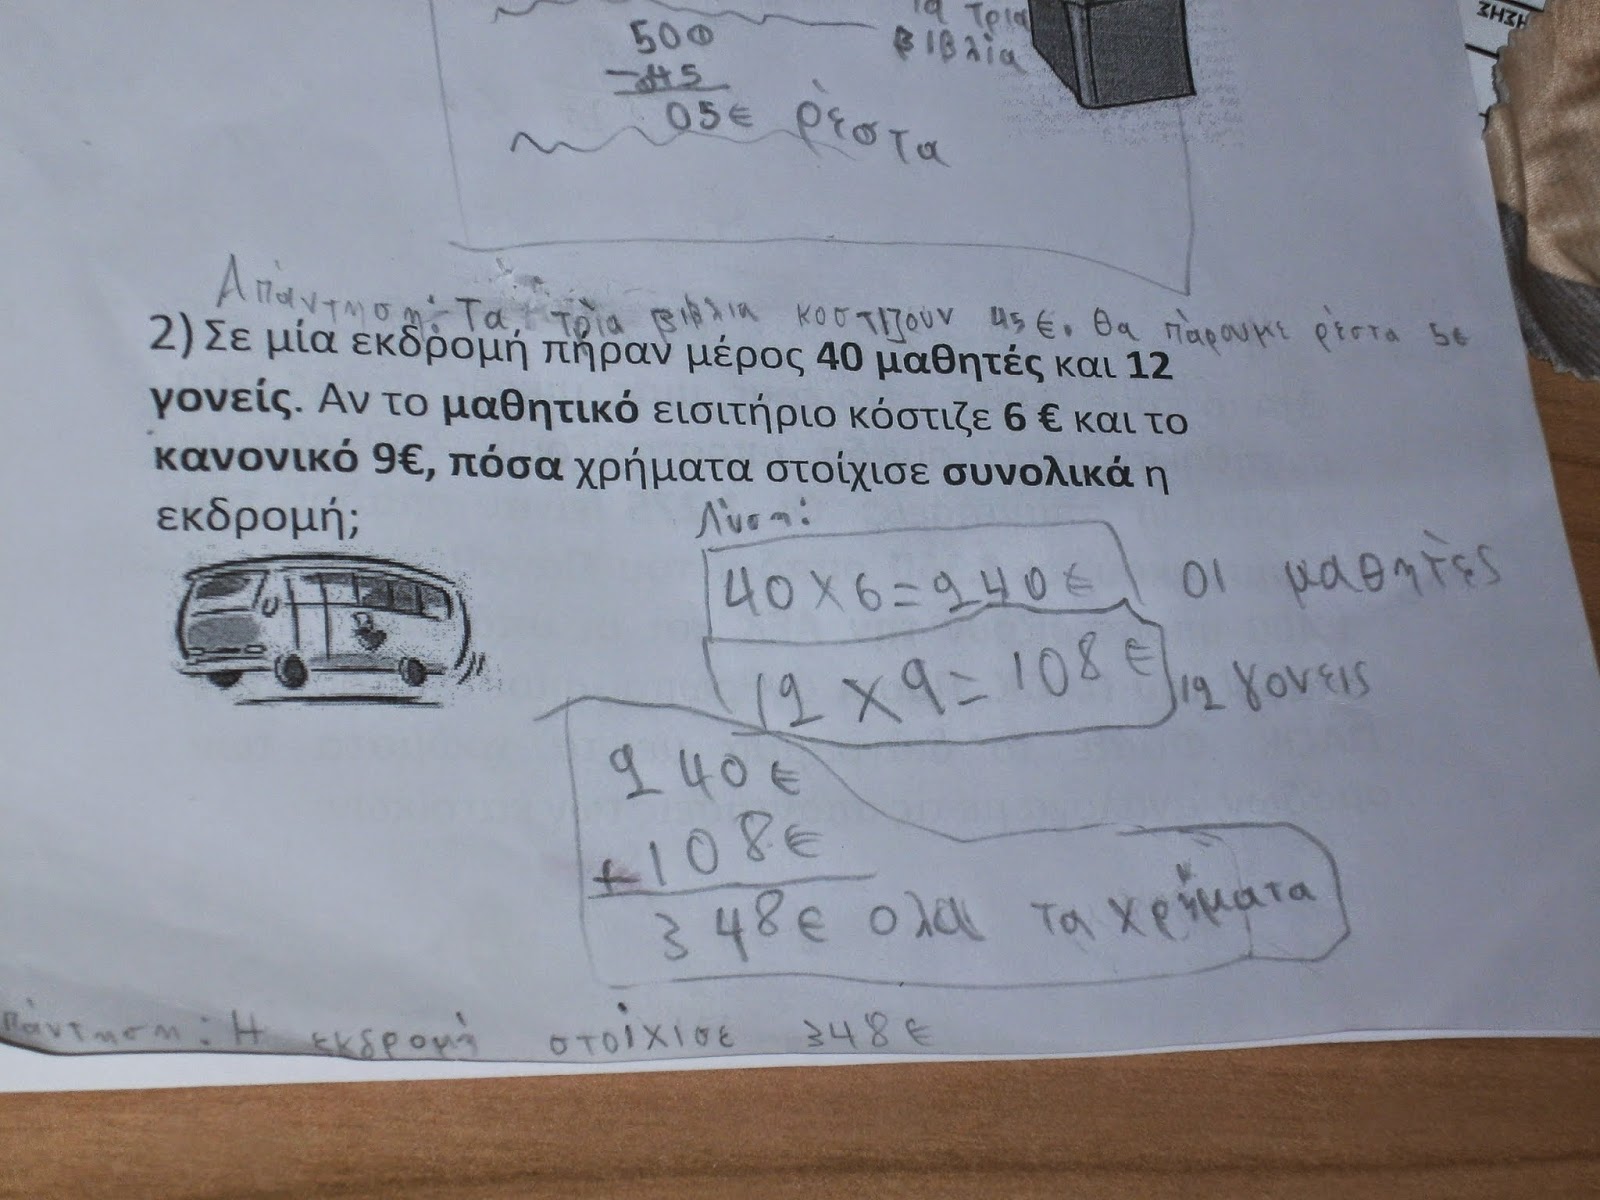 τα τρια
500
βιβλία
-45
05€ ρέστα
Απάντηση: Τα τρία βιβλια κοστιζουν 45€. θα πάρουμε ρέστα 5€
2) Σε μία εκδρομή πήραν μέρος 40 μαθητές και 12
γονείς. Αν το μαθητικό εισιτήριο κόστιζε 6 € και το
κανονικό 9€, πόσα χρήματα στοίχισε συνολικά η
εκδρομή;
Λύση:
40 x 6 = 240€ οι μαθητές
12 x 9 = 108€ 12 γονεις
240€
+108€
348€ ολα τα χρήματα
πάντηση: Η εκδρομή στοίχισε 348€